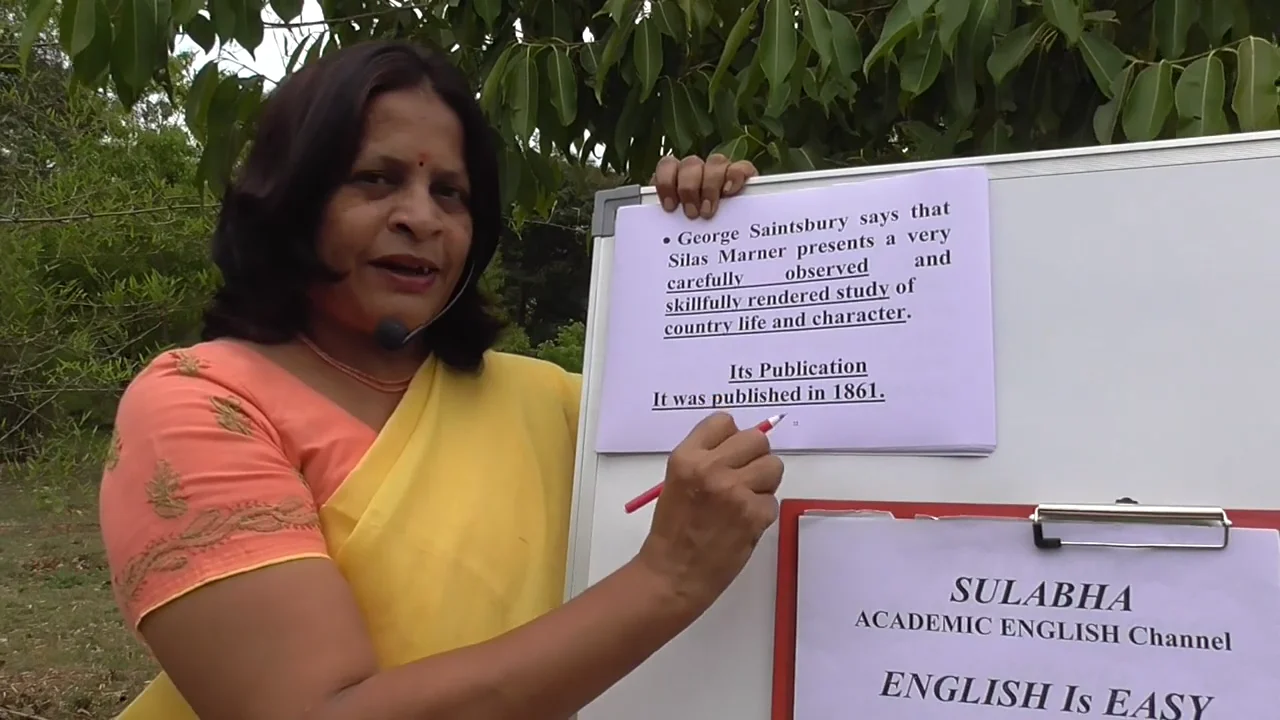 • George Saintsbury says that
Silas Marner presents a very
carefully observed and
skillfully rendered study of
country life and character.
Its Publication
It was published in 1861.
SULABHA
ACADEMIC ENGLISH Channel
ENGLISH Is EASY